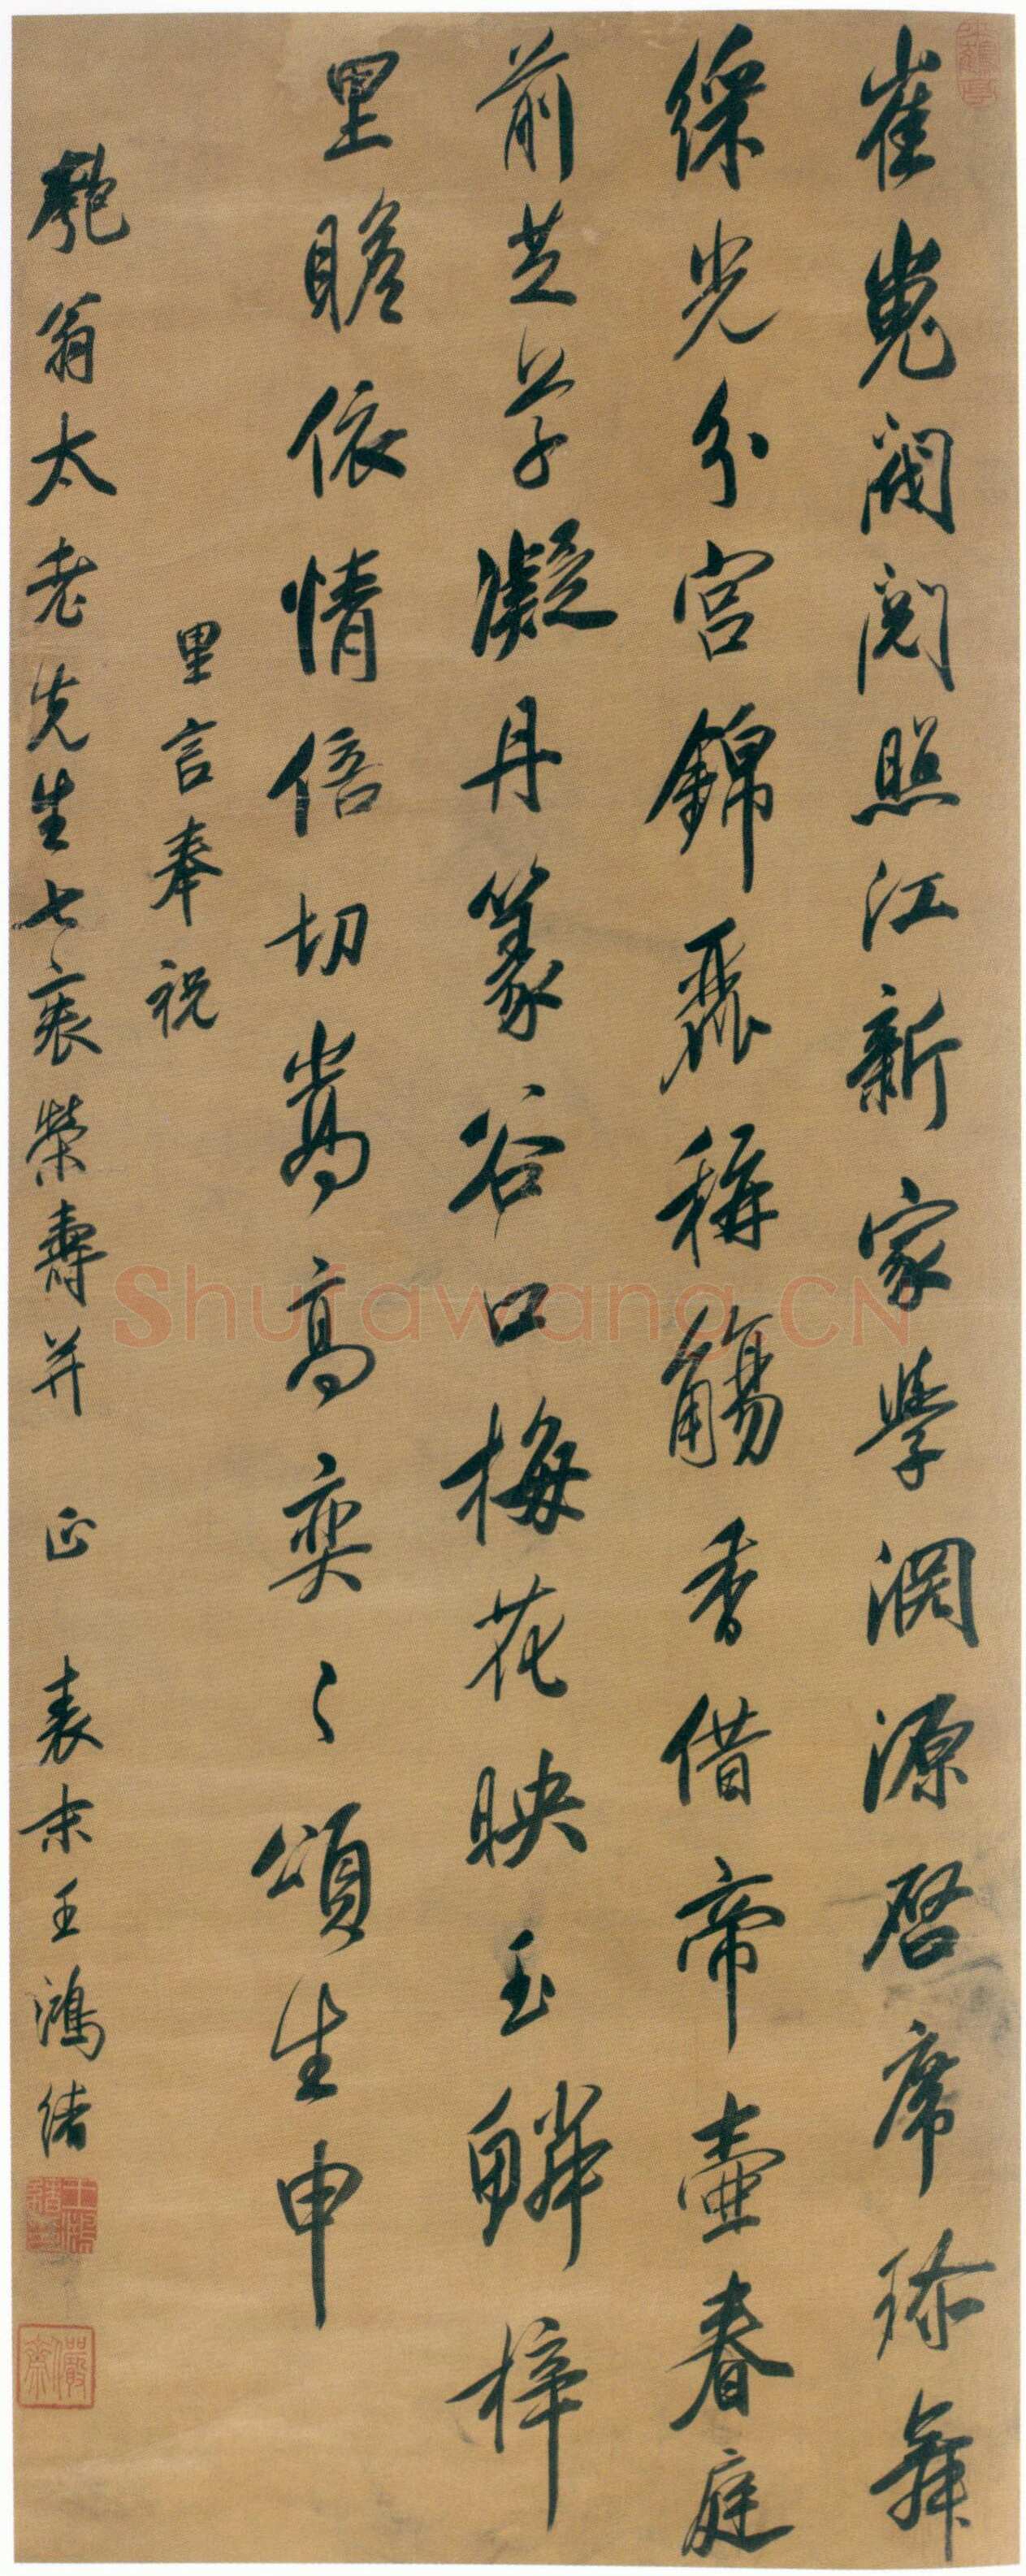 崔嵬閥閱照江新家學淵源啓席珍舞
綵光分宮錦麗稱觴香借帝壺春庭
前芝草凝丹篆谷口梅花映玉鱗梓
里瞻依情倍切嵩高奕〻頌生申
里言奉祝
匏翁太老先生七袠榮壽并 正 表末王鴻緒
儼齋
Shufawang.CN